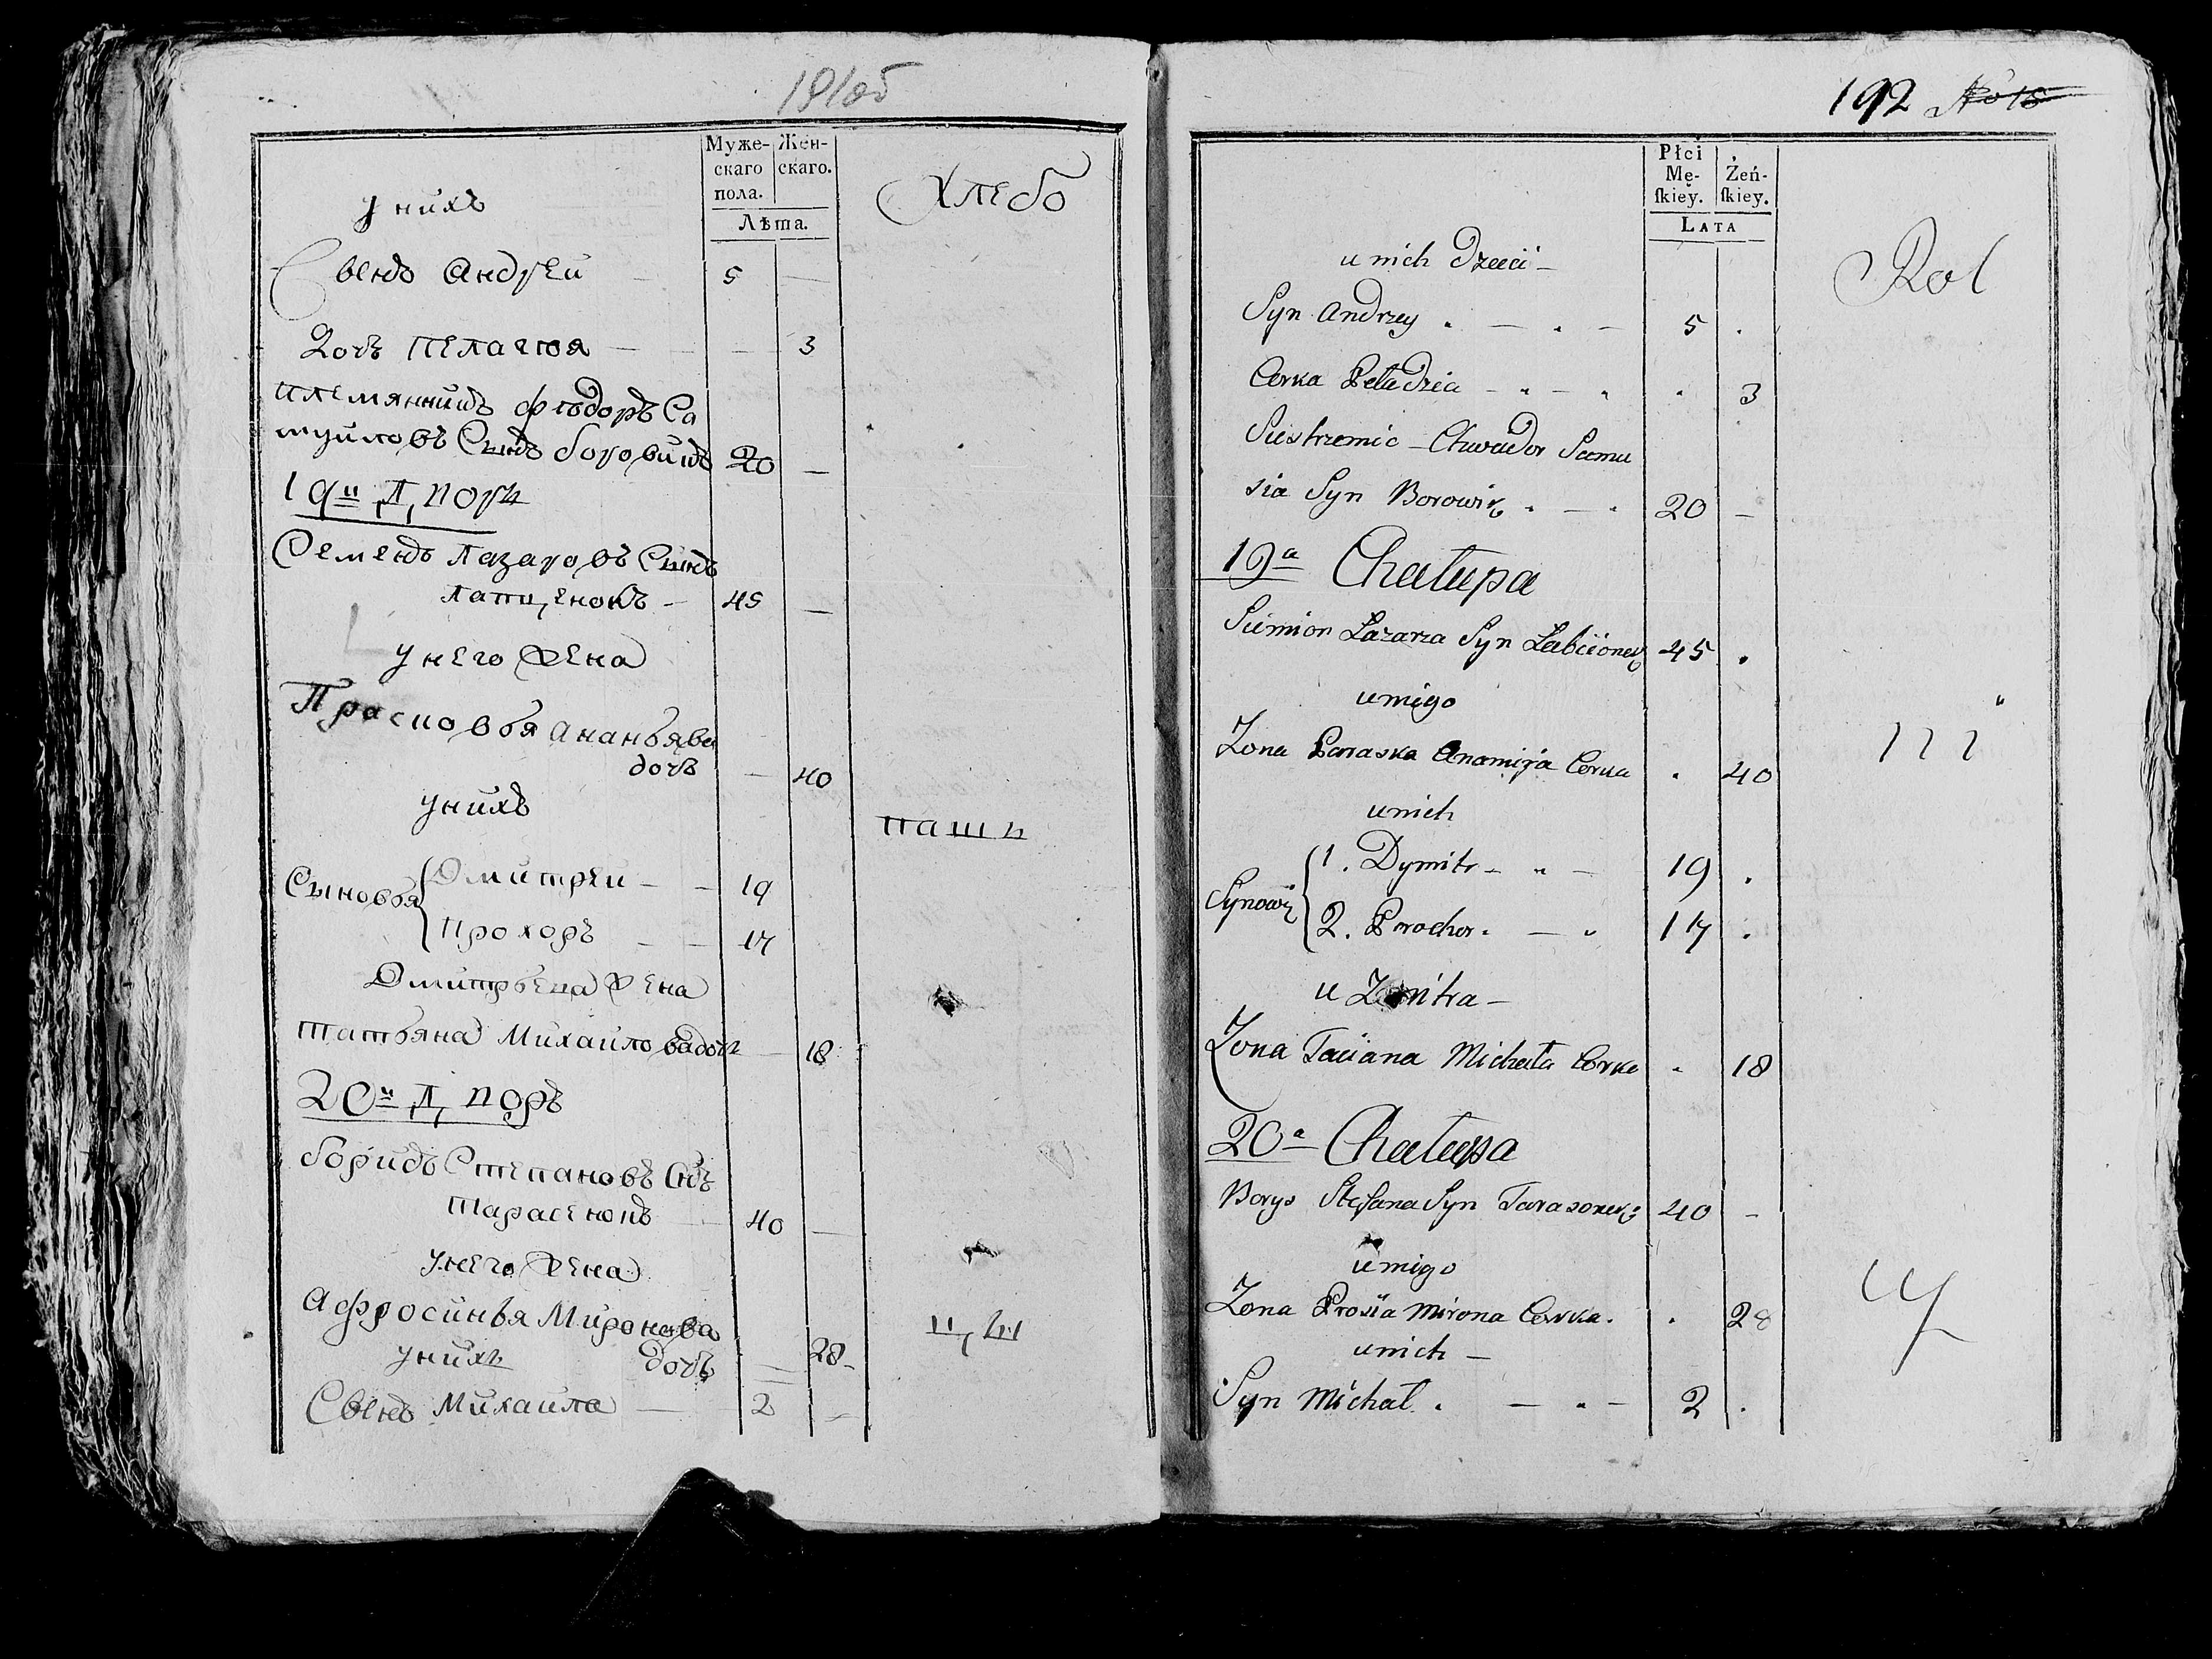 191об
Муже-
скаго
пола.
Жен-
скаго.
Лѣта.
Хлебо
у нихъ
Сынъ Андреи — 5 —
Дочь Пелагюя — — — 3
племянникъ Фюдоръ Са
муиловъ Сынъ боровикъ 20 —
19й Д, воръ
Семенъ Лазаровъ Сынъ
лапценокъ — 45 —
у него жена
Прасковья Ананьява
дочь — 40
у нихъ
паши
Сыновья
Дмитреи — — 19
Прохоръ — — 17
Дмитрьева жена
Татьяна Михаилова дочь — 18
20й Д, воръ
борисъ Степановъ Снъ
Тарасенокъ — 40 —
у него жена
Афросинья Миронова
дочь — 28
у нихъ
Сынъ Михаила — 2 —
192 No 18
Płci
Mę-
ſkiey.
Żeń-
ſkiey.
LATA
Rol
u nich Dzieci —
Syn Andrzey . — . — 5 .
Corka Peladzia — " — " . 3
Siestrzenic — Chwiador Samu
sia Syn Borowik . — . 20 —
19a Chałupa
Siemion Łazarza Syn Łabcionek 45 .
u niego
Zona Paraska Ananija Corka . 40
u nich
Synowie
1. Dymitr — " — 19 .
2. Prochor . — . 17 .
u Zmitra —
Zona Taciana Michała Corka . 18
20a Chałupa
Borys Stefana Syn Tarasonek 40 —
u niego
Zona Prosia Mirona Corka . . 28
u nich —
Syn Michał . — . — 2 .